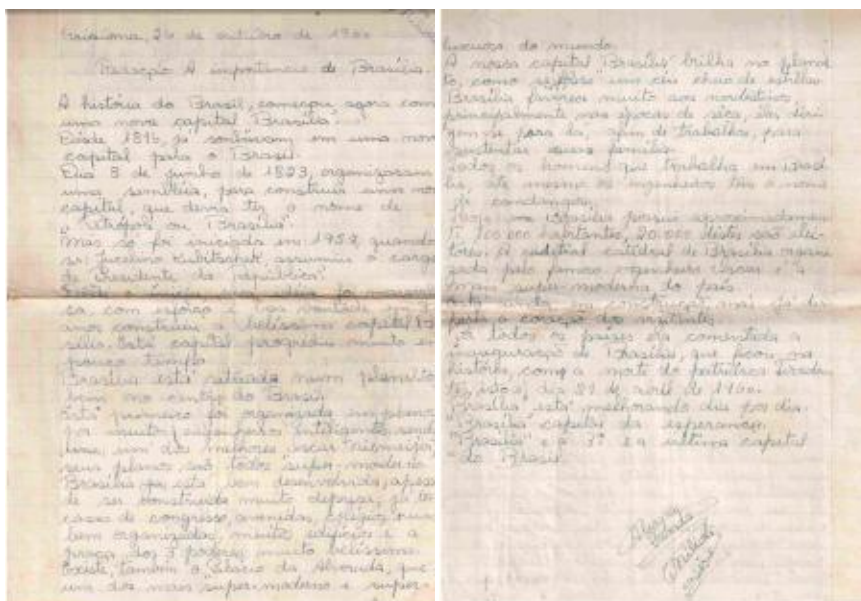 26 de outubro de 1960
Redação A importância de Brasília.
A história do Brasil, começou agora com
uma nova capital "Brasília".
Desde 1816, já sonhavam em uma nova
capital para o Brasil.
Dia 8 de junho de 1823, organizaram
uma para construir uma nova
capital, que devia ter o nome de
"Petrópoli ou Brasília"
Mas só foi iniciada em 195 quando
sr: Jucelino Kubitschek, assumiu o cargo
de Presidente da República.
com esforço e boa vontade
anos construiu a belíssima capital
Esta capital progrediu muito em
pouco tempo.
Brasília está situada num planalto
bem no centro do Brasil
Esta primeiro foi organizada em planos
por muitos engenheiros inteligentes, sendo
um dos melhores, oscar niemeijer,
seus planos são todos super-moderno
Brasília já está bem desenvolvida, apesar
de ser construida muito depressa, já tem
casas de congresso, avenidas, colégios, ruas
bem organizadas, muitos edifícios e a
praça dos 3 poderes, muito belíssima.
Existe, também o Palácio da Alvorada, que
um dos mais "super-moderno e super-
luxuoso do mundo.
A nossa capital "Brasília" brilha no planal
to, como se fosse um céu cheio de estrelas.
Brasília favorece muito aos nordestinos,
principalmente nas épocas de seca, em
se para la, afim de trabalhar, para
sustentar suas família.
Todos os homens que trabalha em Brasí
lia, até mesmo os engenheiros têm o nome
de candangos.
Hoje em Brasília possui aproximadamen
te 100.000 habitantes, 20.000 dêstes são elei
tores. A catedral de Brasília organi
sada pelo famoso engenheiro é a
mais super-moderna do país.
ainda em construção mas já
o coração dos visitantes
todos os países era comentada a
inauguração de Brasília, que ficou na
história, como a morte do patrótico Tiraden
tes, isto é, dia 21 de abril de 1960.
Brasília está melhorando dia por dia.
"Brasília" capital da esperança.
"Brasília" é a 3ª e a última capital
do Brasil.